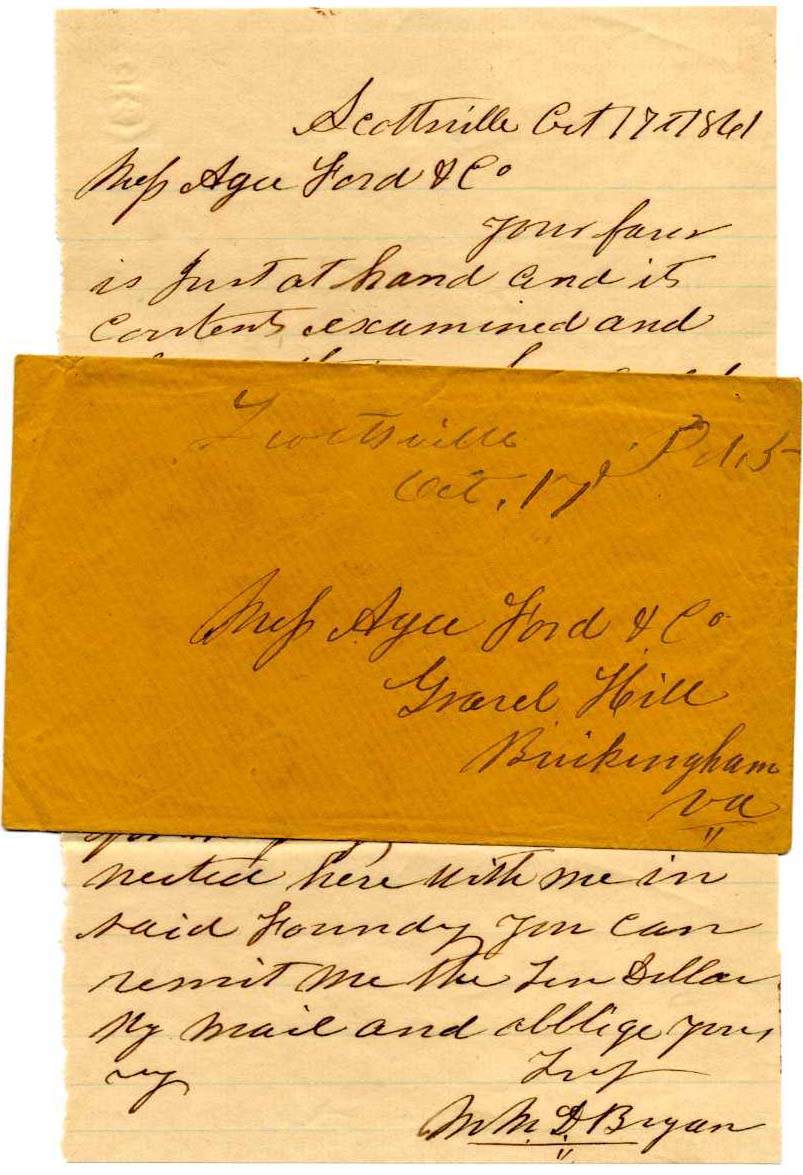 Scottsville Oct 17th 1861
Mess Agee Ford & Co
your faver
is Just at hand and its
contents examined and
Scottsville
Oct. 17 Pd 5
Mess Agee Ford & Co
Gravel Hill
Buckingham
va
nected here with me in
said Foundy you can
remit me the Ten Dollar
By mail and oblige your
Wm D. Bryan